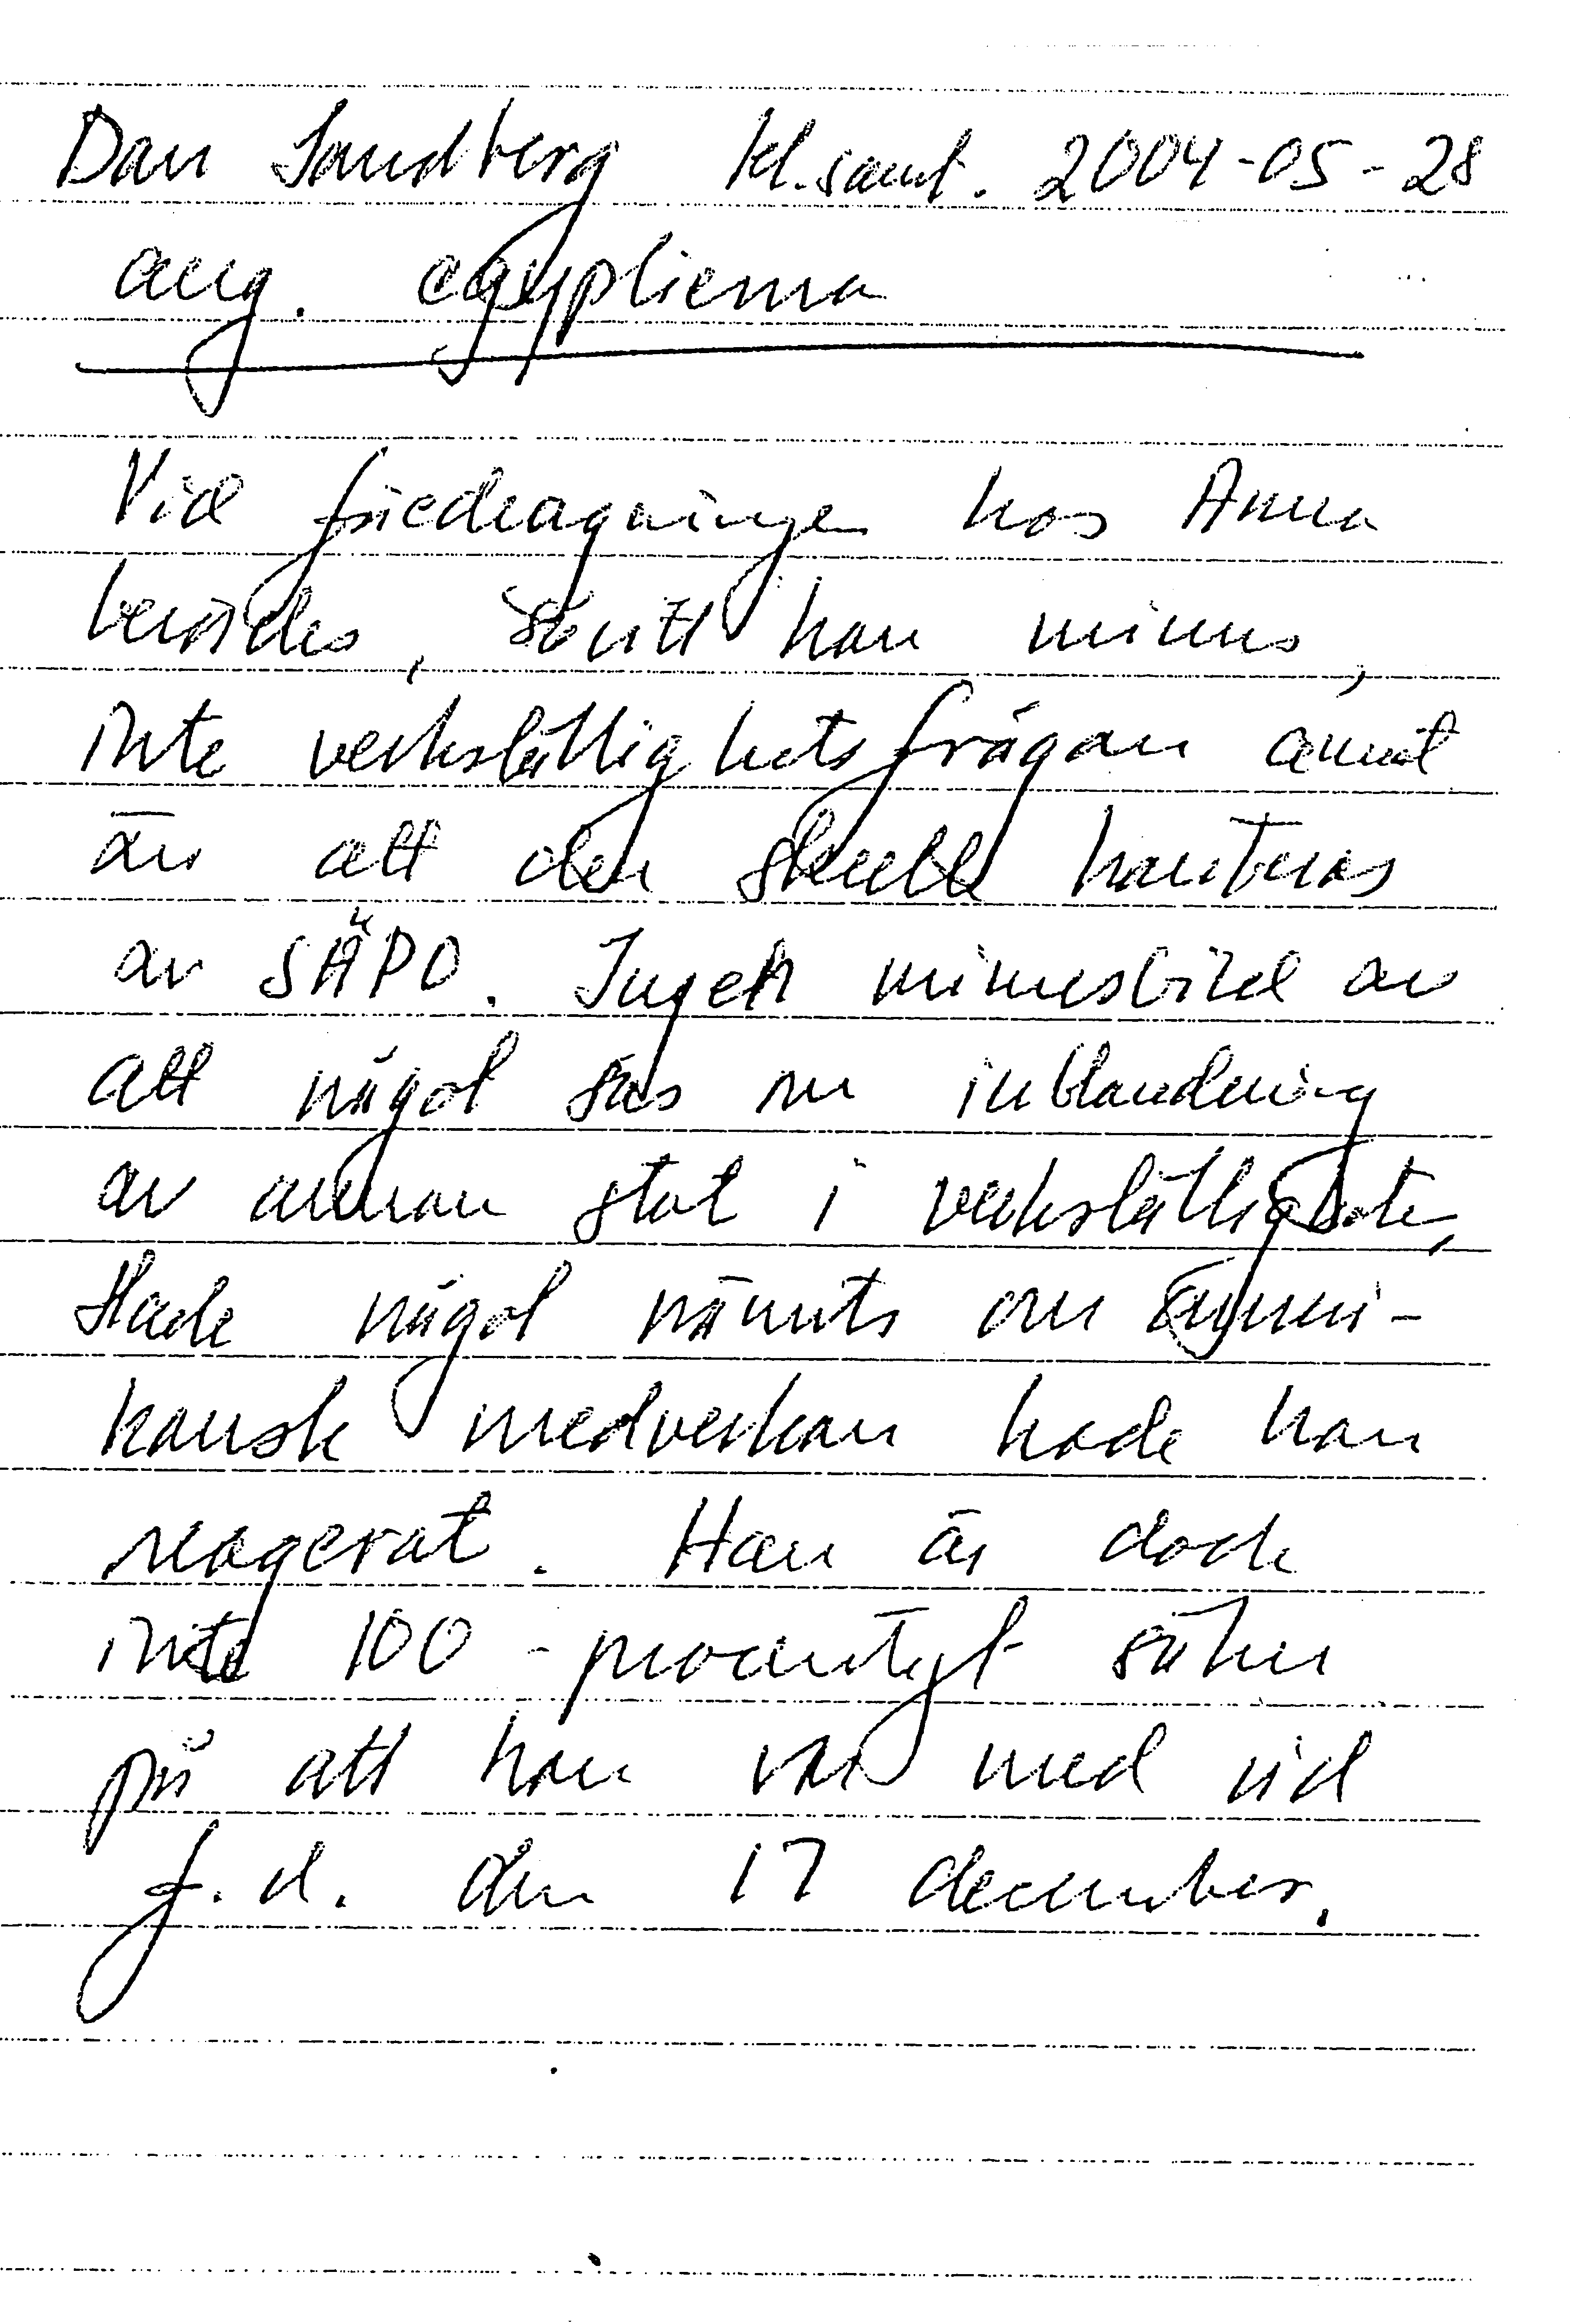 Dan Sandberg tel.samt. 2004-05-28
ang. egyptierna
Vid föredragningen hos Anna
berördes, såvitt han minns,
inte verkställighetsfrågan annat
än att den skulle hanteras
av SÄPO. Ingen minnesbild av
att något sas om inblandning
av annan stat i verkställighete,
Hade något nämnts om ameri-
kansk medverkan hade han
reagerat. Han är dock
inte 100-procentigt säker
på att han var med vid
f.d. den 17 december.